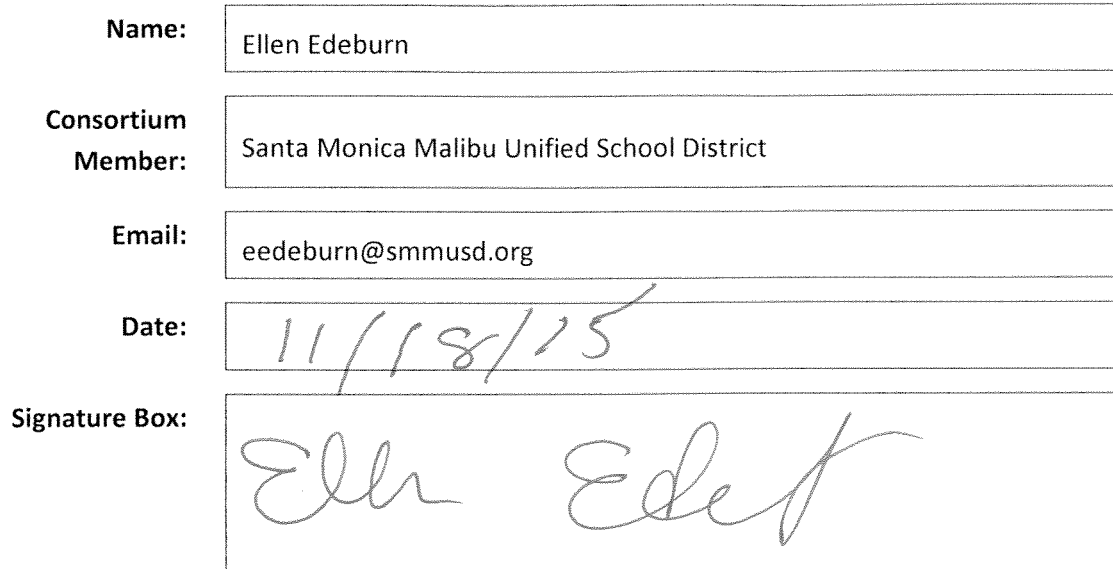 Name:
Ellen Edeburn
Consortium
Member:
Santa Monica Malibu Unified School District
Email:
eedeburn@smmusd.org
Date:
11/18/15
Signature Box:
Ellen